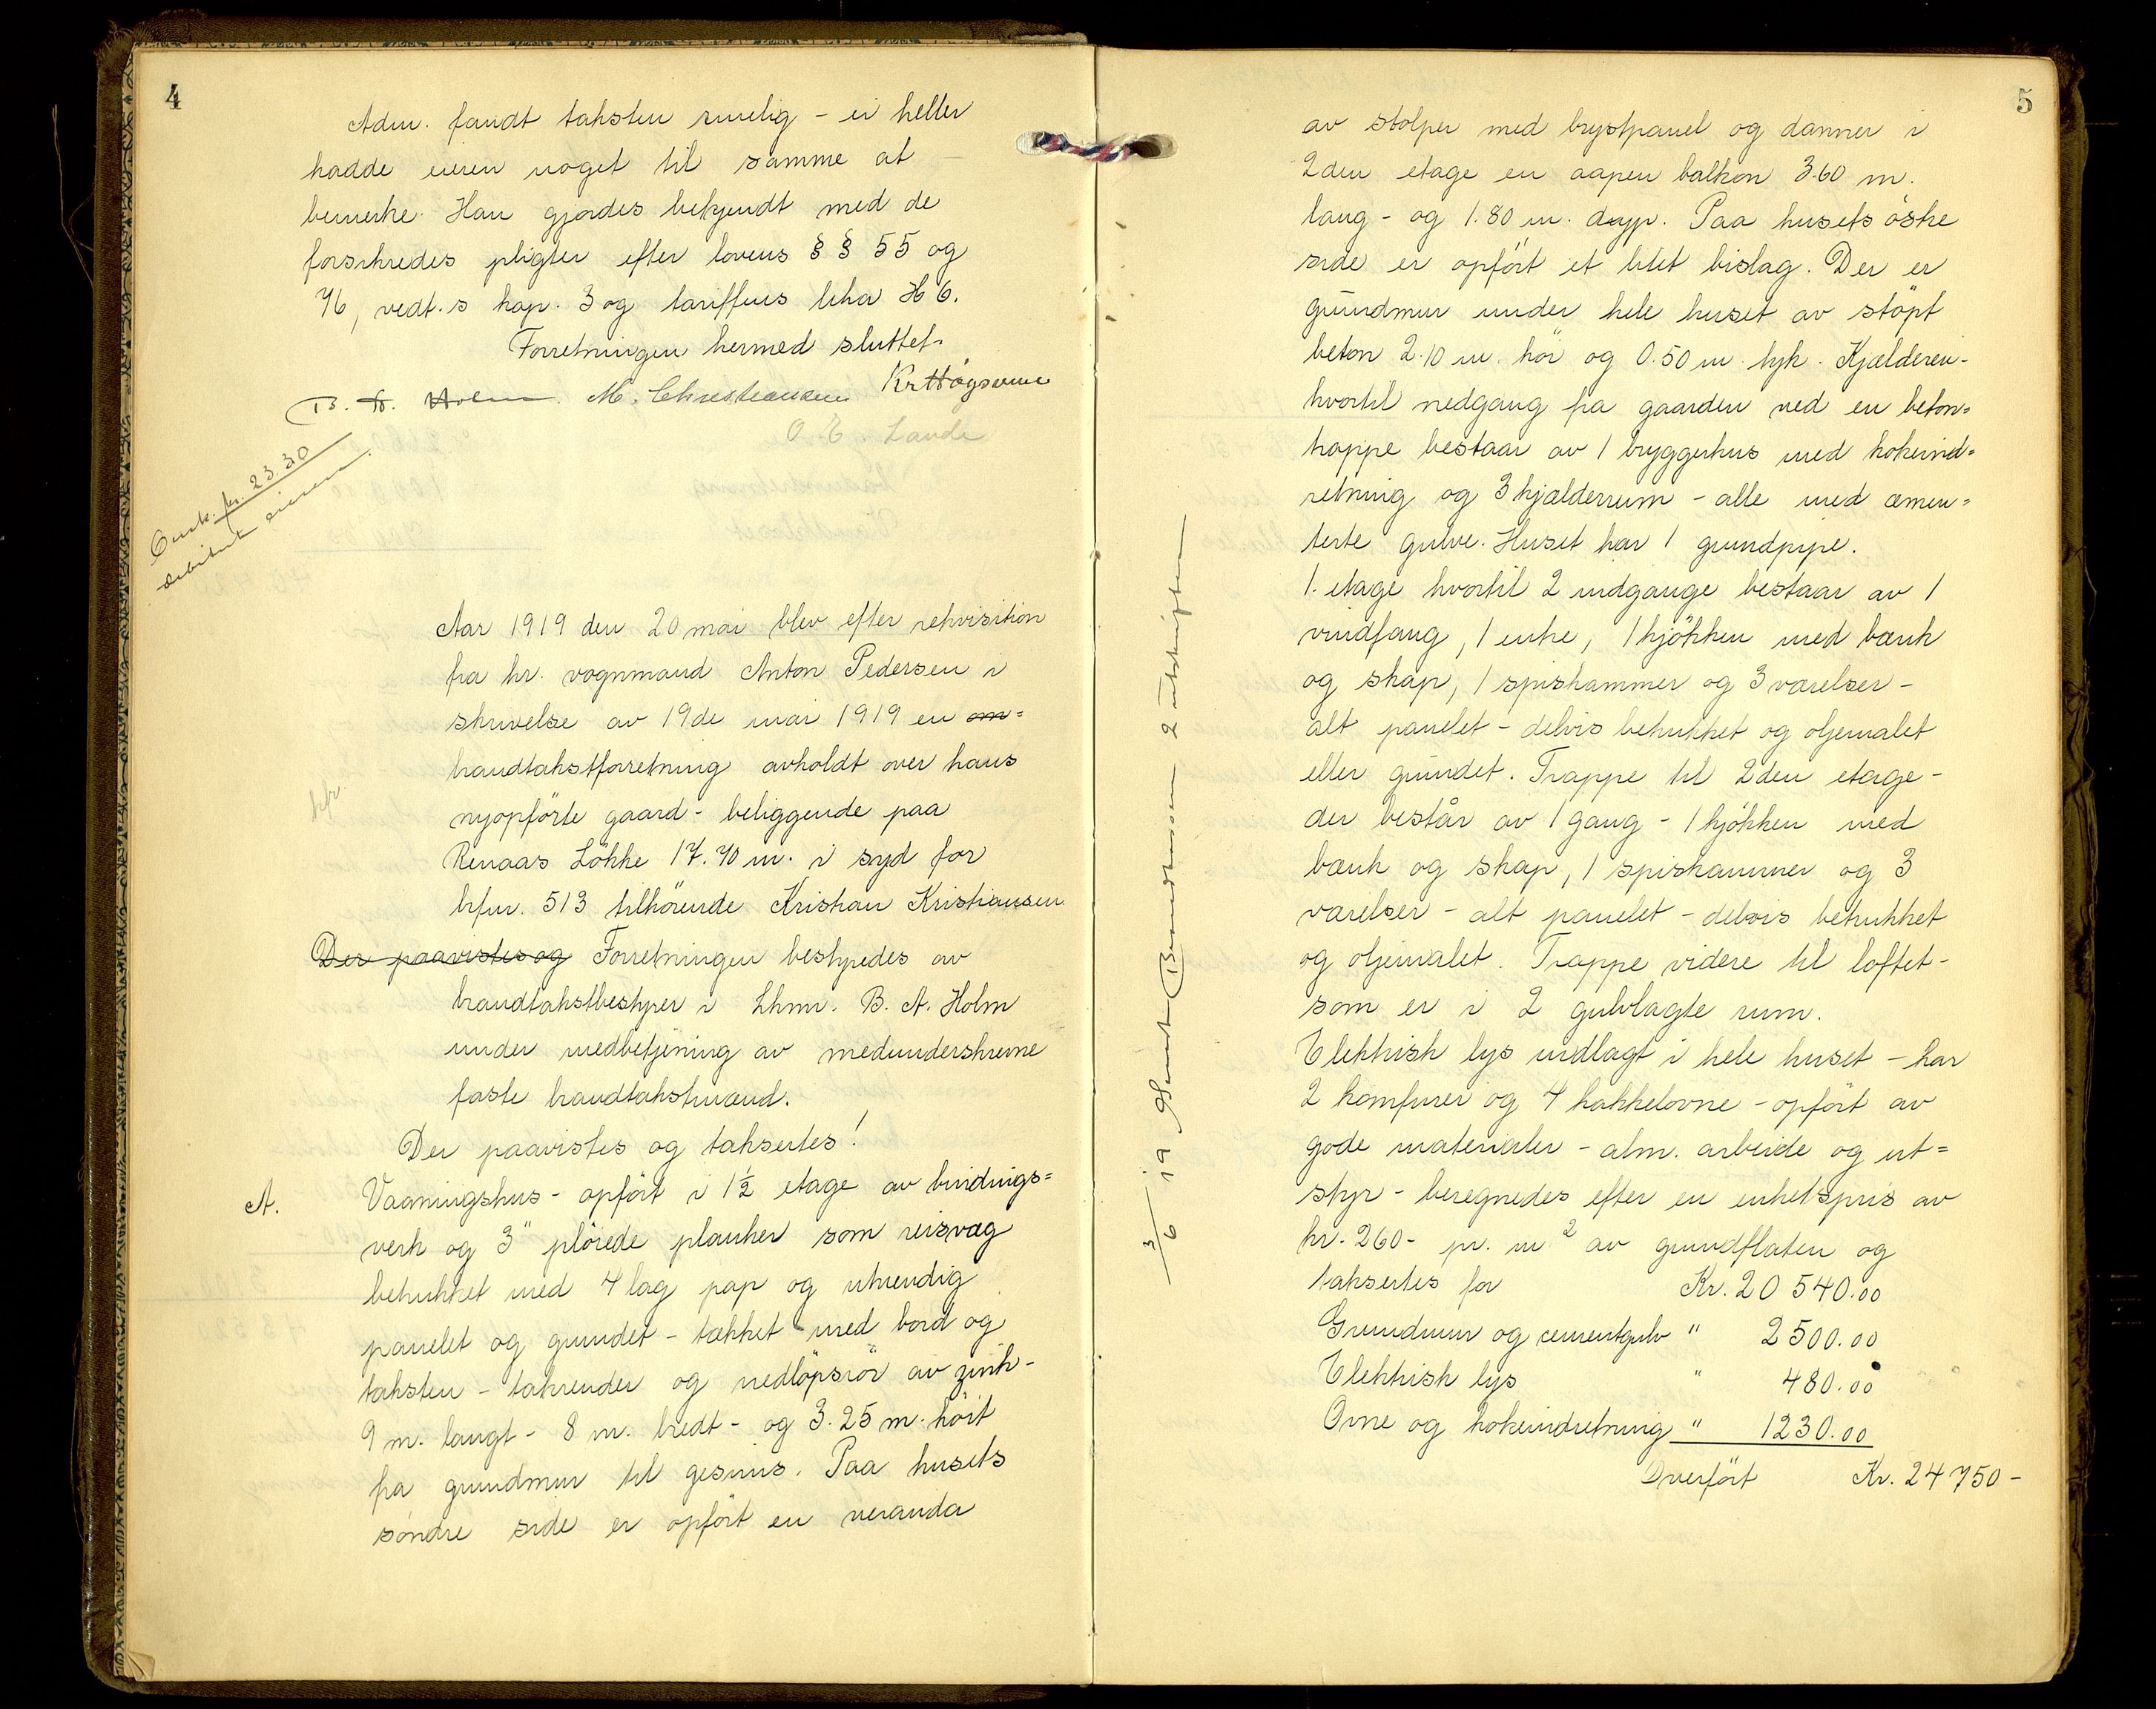 4
Adm. fandt taksten rimelig - ei heller
hadde eieren noget til samme at
bemerke. Han gjordes bekjendt med de
forskredes pligter efter lovens § § 55 og
76, vedt.s kap. 3 og tariffens litra H 6.
Forretningen hermed sluttet.
B. A. Holm M. Christiansen Kr
O. E. Lande
Omk. kr. 23.30
debitert eieren.
Aar 1919 den 20 mai blev efter rekvisition
fra hr. vognmand Anton Pedersen i
skrivelse av 19de mai 1919 en om=
brandtakstforretning avholdt over hans
nyopförte gaard - beliggende paa
Renaas Lökke 17.70 m. i syd for
brfnr. 513 tilhörende Kristian Kristiansen
Der paavistes og Forretningen bestyredes av
brandtakstbestyrer i Lhmr. B. A. Holm
under medbetjening av medunderskrevne
faste brandtakstmænd.
Der paavistes og taksertes!
A. Vaaningshus - opfört i 1½ etage av bindings=
verk og 3" plöiede planker som reisvæg
betrukket med 4 lag pap og utvendig
panelet og grundet - tækket med bord og
taksten - takrender og nedlöpsrör av zink -
9 m. langt - 8 m. bredt - og 3.25 m. höit
fra grundmur til gesims. Paa husets
söndre side er opfört en veranda
3/6 19 Sendt 2 utskrifter
5
av stolper med brystpanel og danner i
2den etage en aapen balkon 3.60 m.
lang - og 1.80 m. dyp. Paa husets östre
side er opfört et litet bislag. Der er
grundmur under hele huset av stöpt
beton 2.10 m. höi og 0.50 m. tyk. Kjælderen -
hvortil nedgang fra gaarden ved en beton=
trappe bestaar av 1 bryggerhus med kokeind=
retning og 3 kjælderrum - alle med cemen=
terte gulve. Huset har 1 grundpipe.
1. etage hvortil 2 indgange bestaar av 1
vindfang, 1 entre, 1 kjökken med bænk
og skap, 1 spiskammer og 3 værelser -
alt panelet - delvis betrukket og oljemalet
eller grundet. Trappe til 2den etage -
der består av 1 gang - 1 kjökken med
bænk og skap, 1 spiskammer og 3
værelser - alt panelet - delvis betrukket
og oljemalet. Trappe videre til loftet -
som er i 2 gulvlagte rum.
Elektrisk lys indlagt i hele huset - har
2 komfurer og 4 kakkelovne - opfört av
gode materialer - alm. arbeide og ut=
styr - beregnedes efter en enhetspris av
kr. 260- pr. m² av grundflaten og
taksertes for Kr. 20 540.00
Grundmur og cementgulv " 2 500.00
Elektrisk lys " 480.00
Ovne og kokeindretning " 1230.00
Overfört Kr. 24 750 -